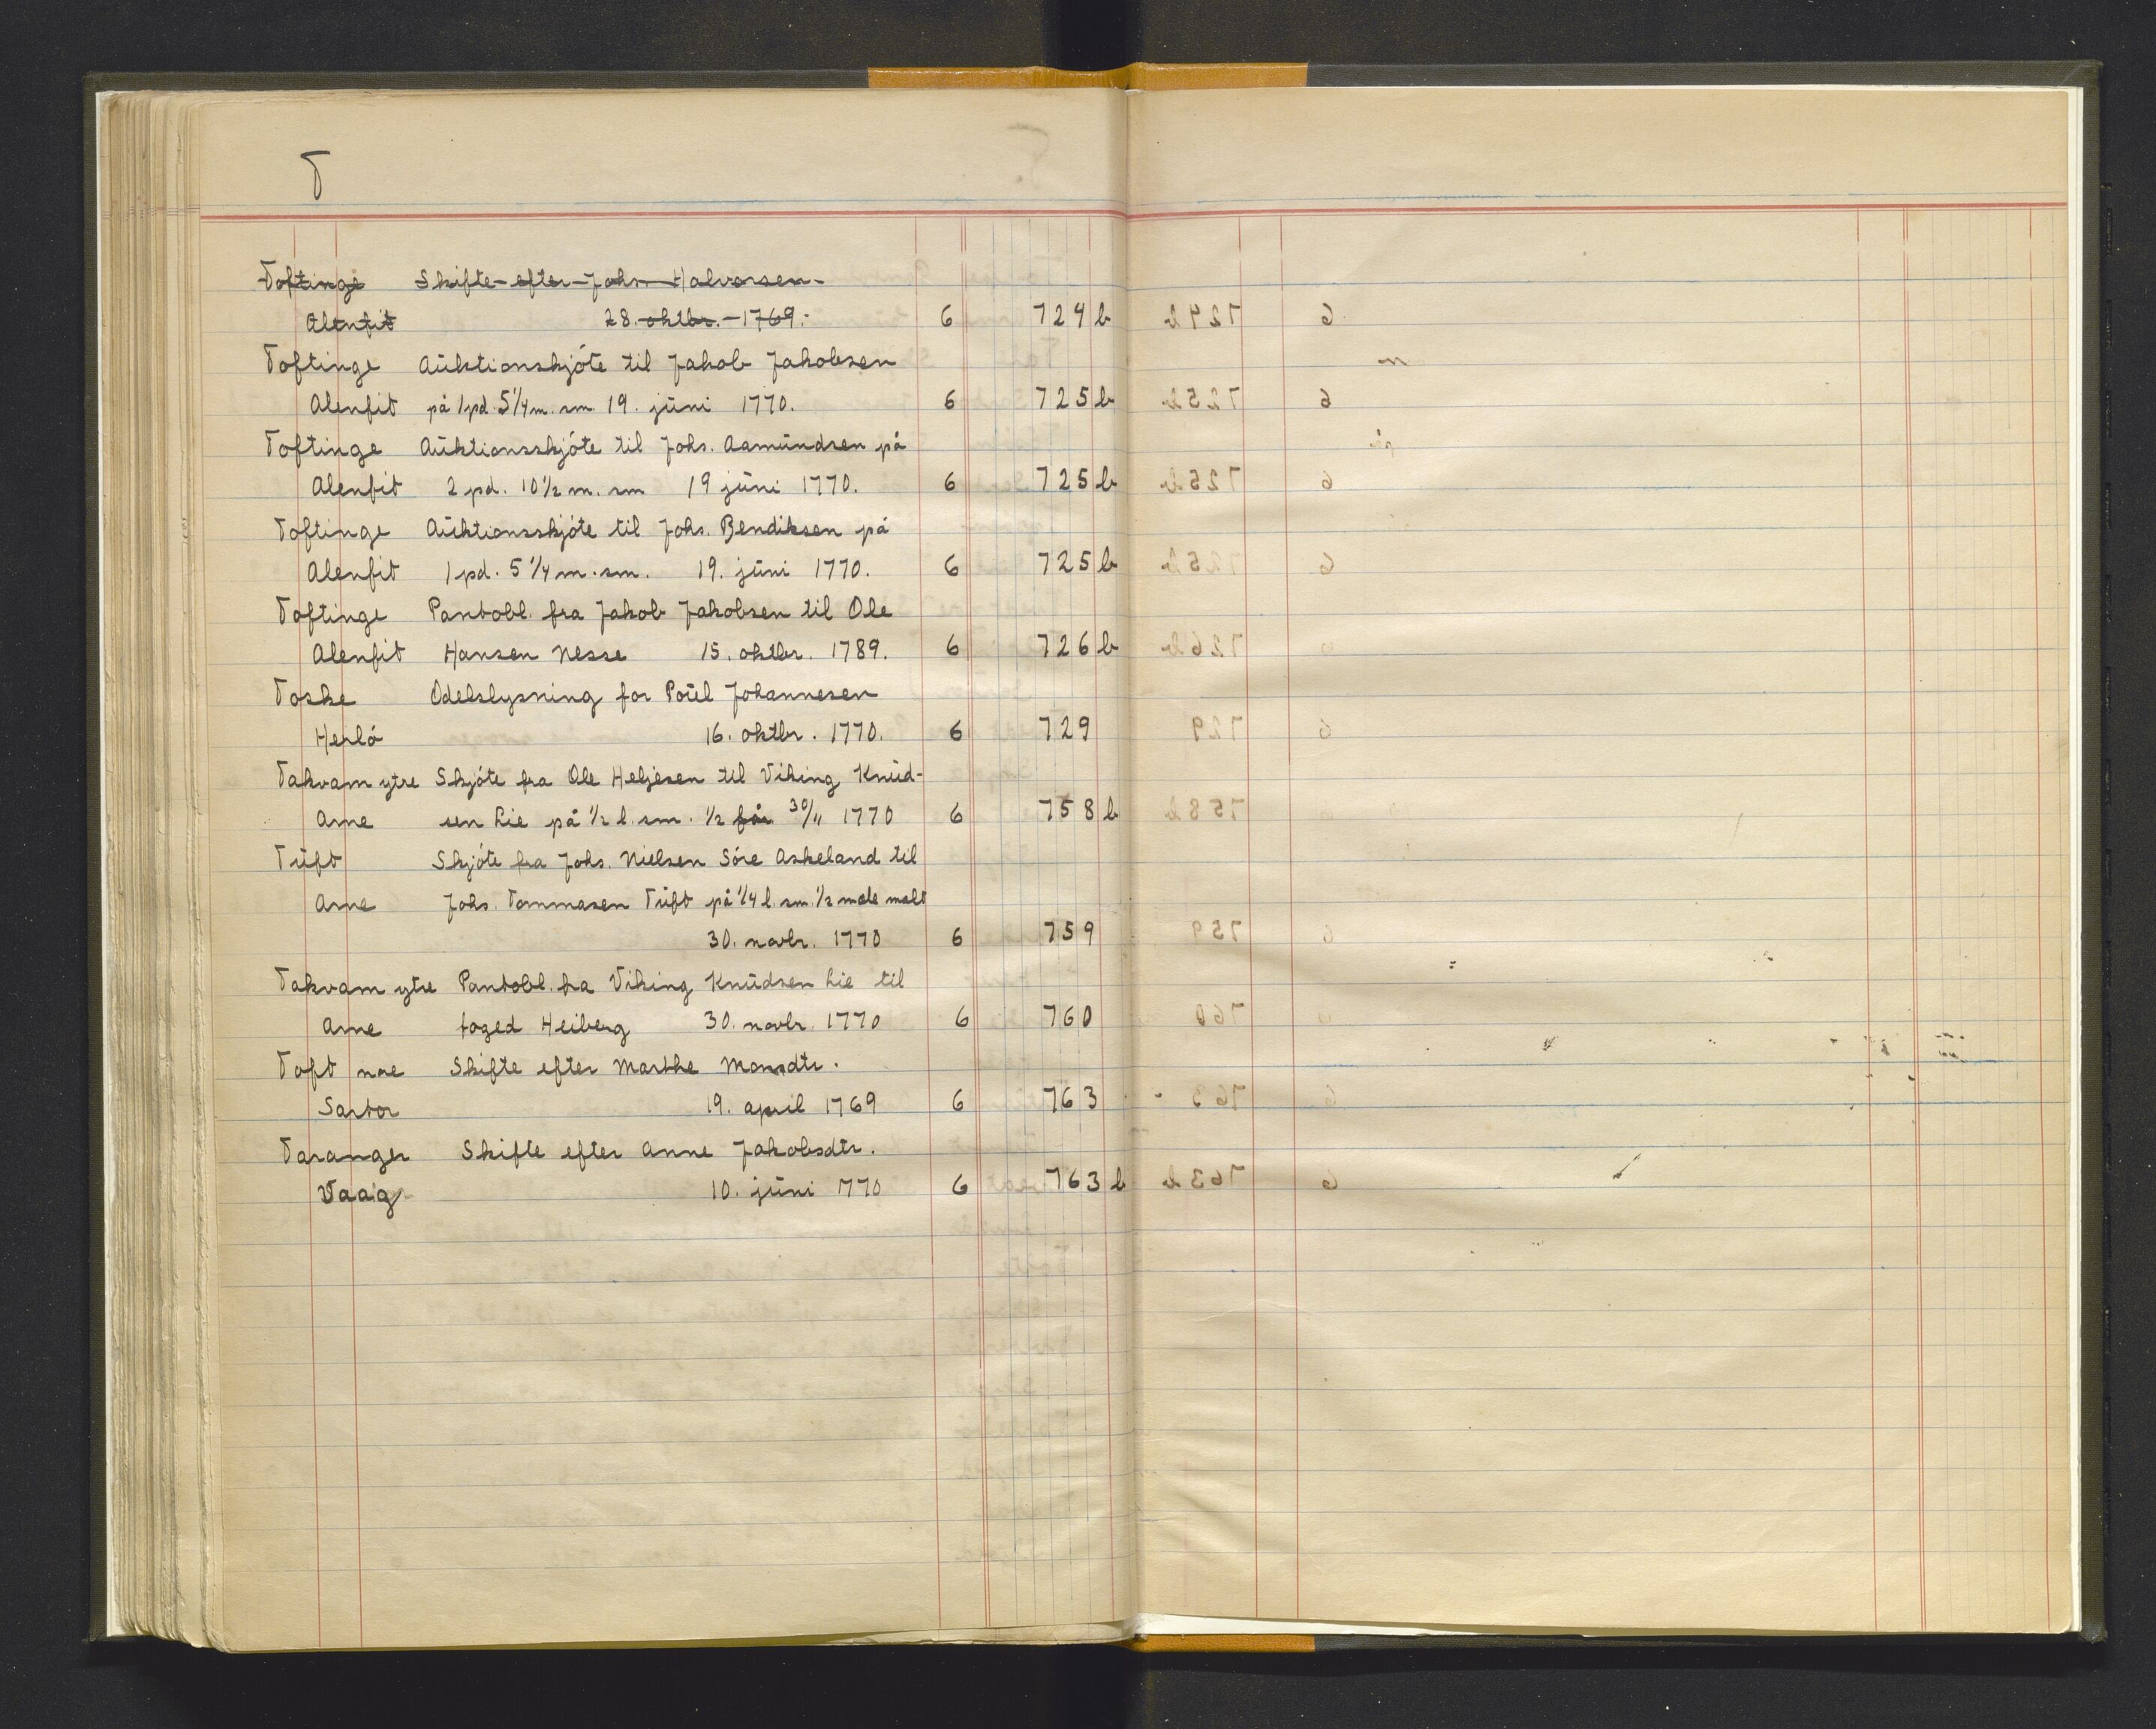 T
Toftinge Skifte efter Johs. Halvorsen
Alenfit 28. oktbr. 1769. 6 724 b
Toftinge Auktionskjöte til Jakob Jakobsen
Alenfit på 1 pd. 5 1/4 m. sm. 19. juni 1770. 6 725 b
Toftinge Auktionsskjöte til Johs. Aamundsen på
Alenfit 2 pd. 10 1/2 m. sm 19 juni 1770. 6 725 b
Toftinge Auktionsskjöte til Johs. Bendiksen på
Alenfit 1 pd. 5 1/4 m. sm. 19. juni 1770. 6 725 b
Toftinge Pantobl. fra Jakob Jakobsen til Ole
Alenfit Hansen Nesse 15. oktbr. 1789. 6 726 b
Toske Odelslysning for Poul Johannesen
Herlö 16. oktbr. 1770. 6 729
Takvam ytre Skjöte fra Ole Heljesen til Viking Knud-
Arne sen Lie på 1/2 l. sm. 1/2 får 30/11 1770 6 758 b
Tuft Skjöte fra Johs. Nielsen Söre Askeland til
Arne Johs. Tommasen Tuft på 1/4 l. sm. 1/2 mæle malt
30. novbr. 1770 6 759
Takvam ytre Pantobl. fra Viking Knudsen Lie til
Arne foged Heiberg 30. novbr. 1770 6 760
Toft nøe Skifte efter Marthe Monsdtr.
Sartor 19. april 1769 6 763
Taranger Skifte efter Anne Jakobsdtr.
Vaag 10. juni 1770 6 763 b